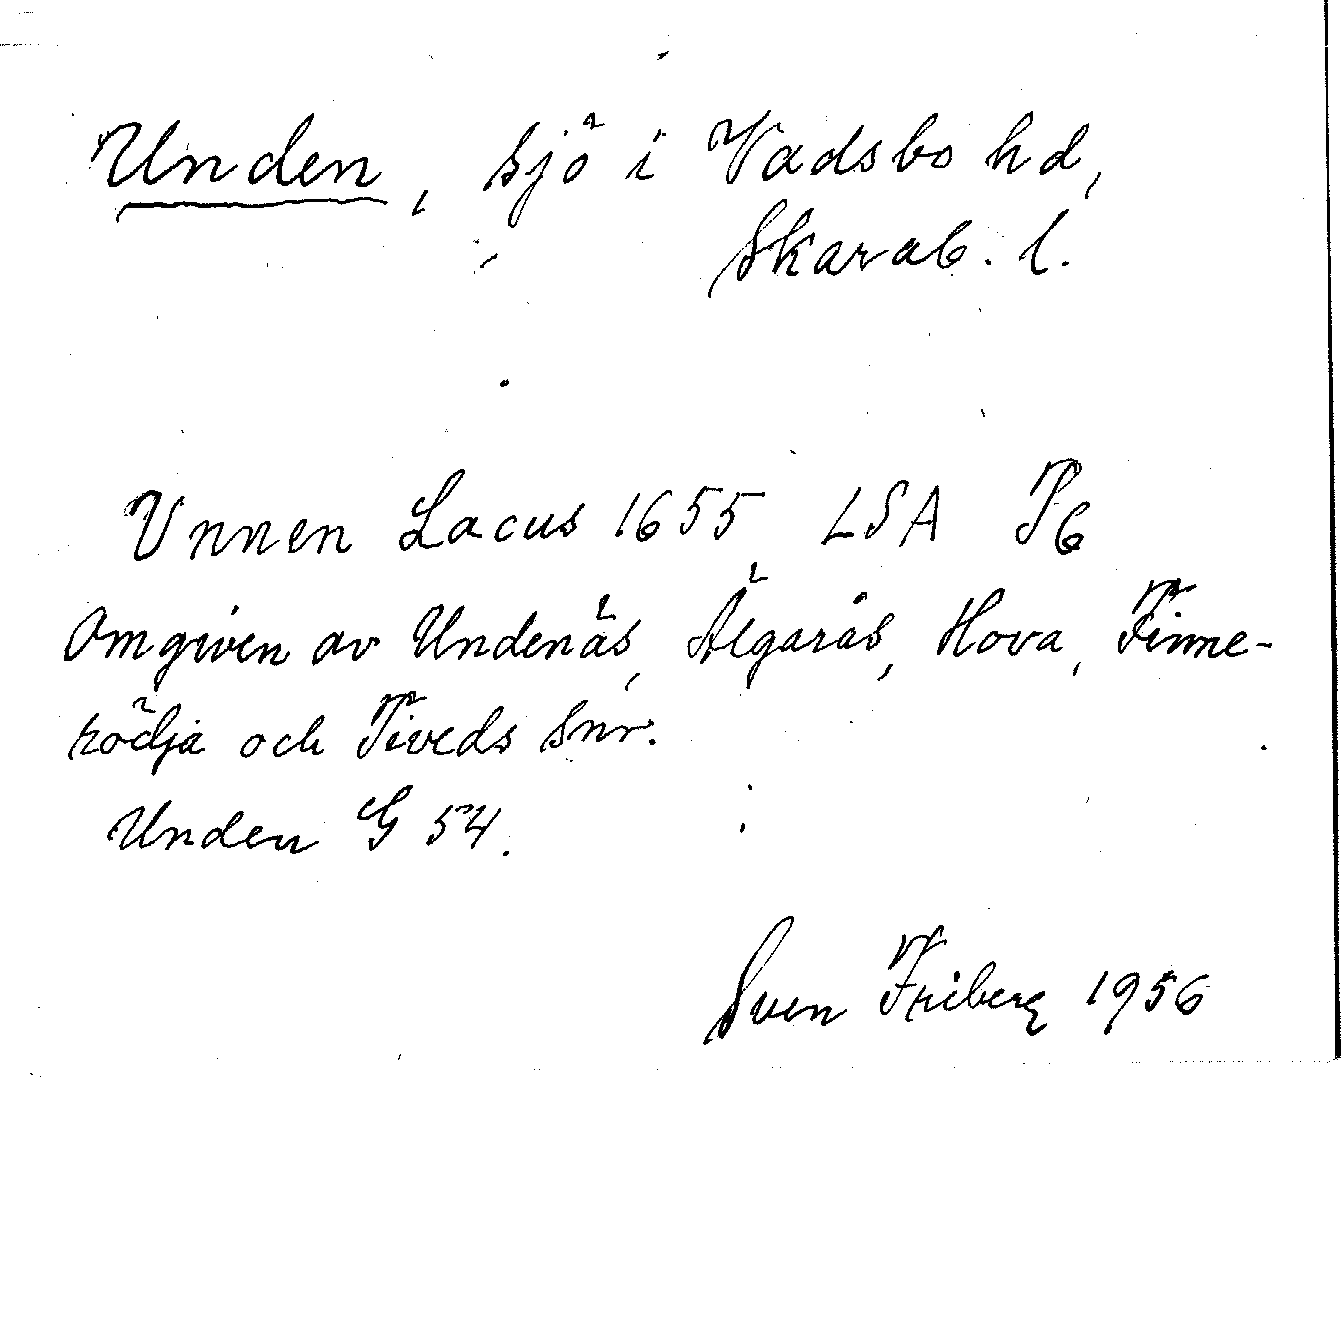 Unden, sjö i Vadsbo hd,
Skarab. l.
Unnen Lacus 1655 LSA P6
Omgiven av Undenäs, Älgarås, Hova, Finne-
rödja och Tiveds snr.
Unden G 54.
Sven Friberg 1956